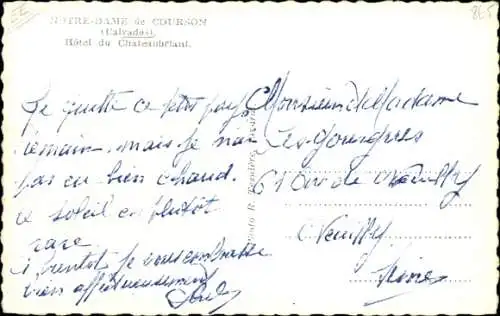 NOTRE-DAME de COURSON
(Calvados)
Hôtel du Chateaubriant.
Je quitte ce petit pays
demain, mais je n'ai
pas eu bien chaud.
ce soleil est plutôt
rare
A bientôt je vous embrasse
bien affectueusement
Monsieur et Madame
61 Av de Neuilly
Neuilly
Seine
Photo R.